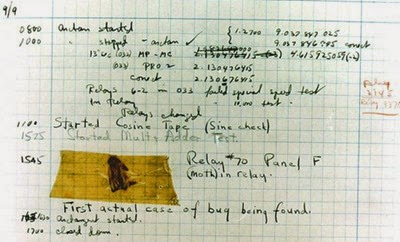 9/9
0800 Antan started
1000 " stopped - antan ✓ { 1.2700 9.037 847 025
9.037 846 995 correct
13" UC (032) MP-MC 2.130476415 (-3) 4.615925059(-2)
(033) PRO 2 2.130476415
correct 2.130676415
Relays 6-2 in 033 failed special speed test
in relay " 10.000 test.
Relays changed
1100 Started Cosine Tape (Sine check)
1525 Started Mult+ Adder Test.
1545 Relay #70 Panel F
(moth) in relay.
First actual case of bug being found.
1630 antangent started.
1700 closed down.